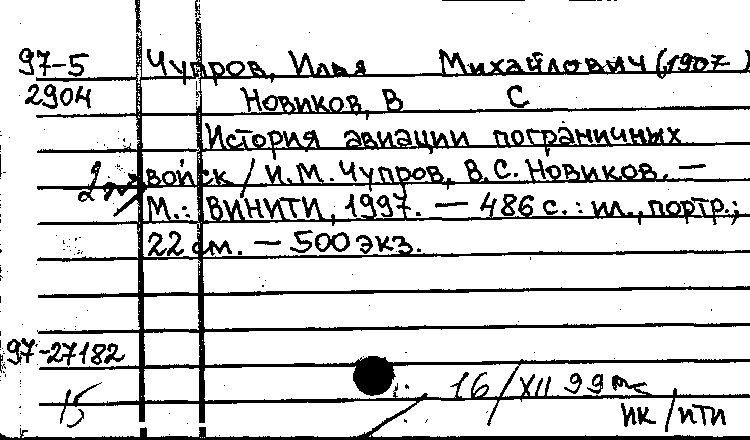 97-5 Чупров, Илья Михайлович (1907
2904 Новиков, В С
История авиации пограничных
войск / И.М. Чупров, В.С. Новиков. —
М.: ВИНИТИ, 1997. — 486 с. : ил., портр.;
22 см. — 500 экз.
97-27182
15 16/XII 99
ПК/ПТИ